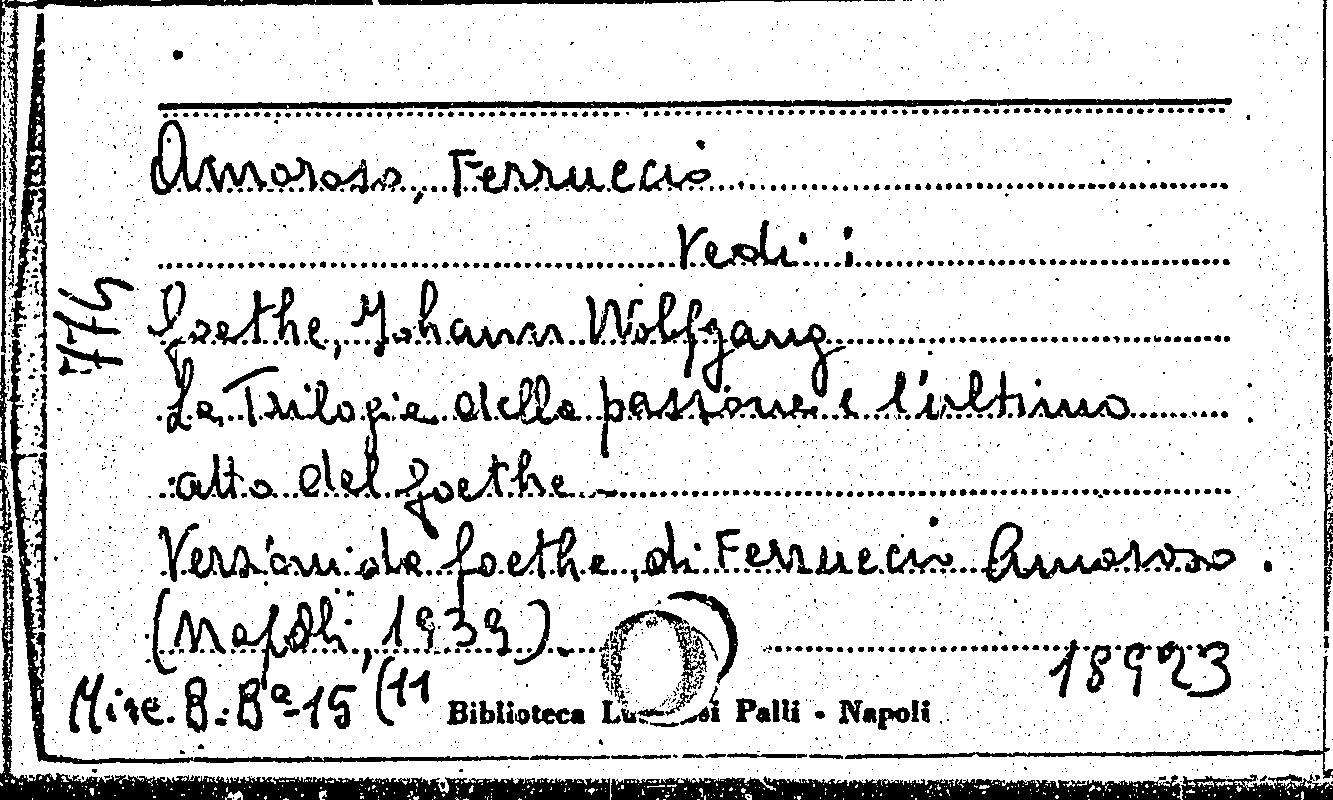 Amoroso, Ferruccio
Vedi:
Goethe, Johann Wolfgang
La Trilogia della passione e l'ultimo
alto del Goethe -
Versioni da Goethe, di Ferruccio Amoroso.
(Napoli, 1939).
18923
Misc. B. Bª-15 (11
Biblioteca Palli - Napoli